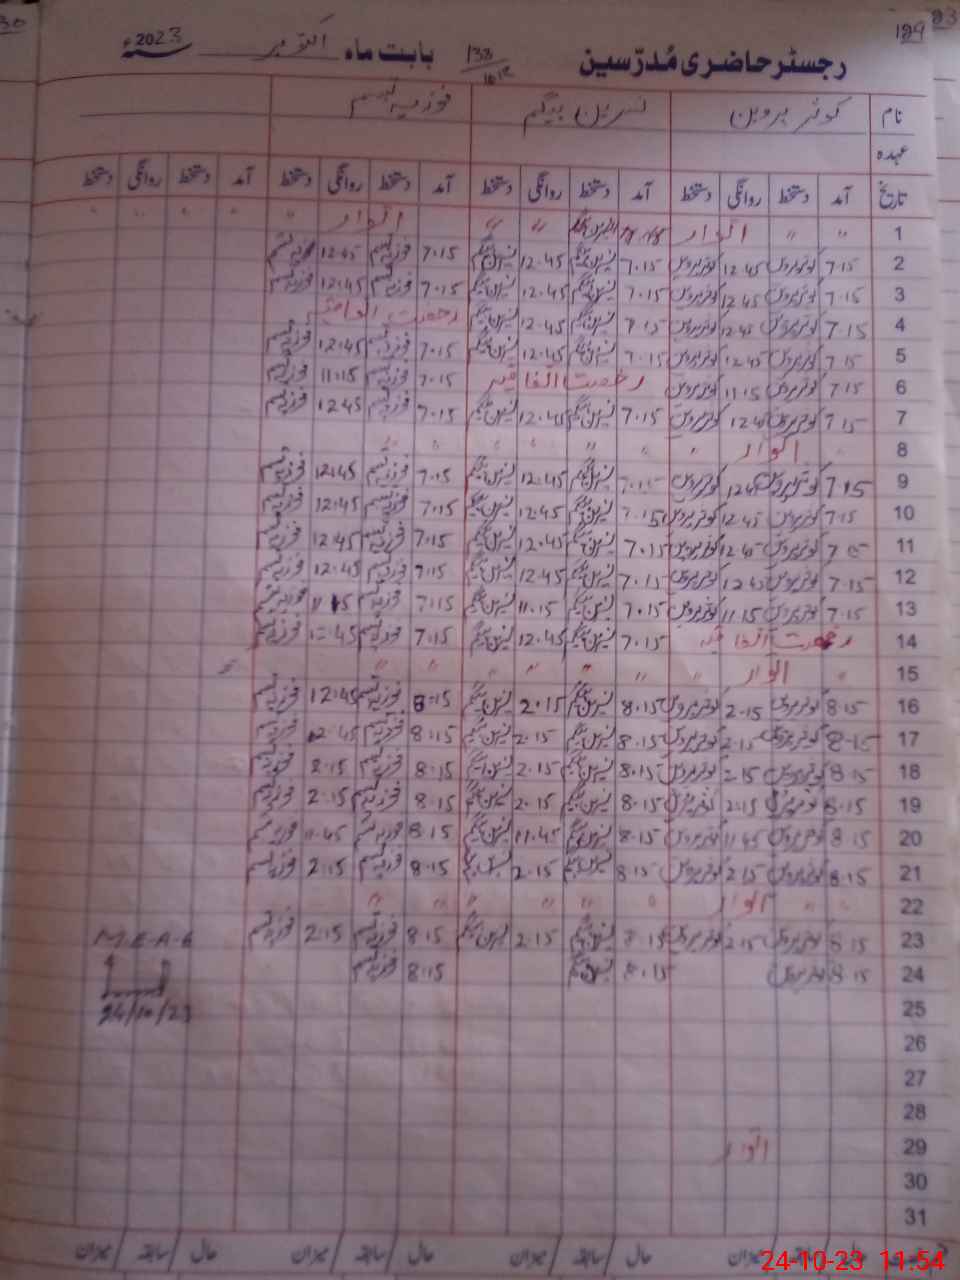 129
رجسٹر حاضری مُدرّسین 133 بابت ماہ اکتوبر 2023ء
نام کوثر پروین نسرین بیگم فوزیہ نسیم
عہدہ
تاریخ آمد دستخط روانگی دستخط آمد دستخط روانگی دستخط آمد دستخط روانگی دستخط آمد دستخط روانگی دستخط
1 " " اتوار " " اتوار " " " " "
2 7.15 کوثر پروین 12.45 کوثر پروین 7.15 نسرین بیگم 12.45 نسرین بیگم 7.15 فوزیہ نسیم 12.45 فوزیہ نسیم
3 7.15 کوثر پروین 12.45 کوثر پروین 7.15 نسرین بیگم 12.45 نسرین بیگم 7.15 فوزیہ نسیم 12.45 فوزیہ نسیم
4 7.15 کوثر پروین 12.45 کوثر پروین 7.15 نسرین بیگم 12.45 نسرین بیگم رخصت اتفاقیہ
5 7.15 کوثر پروین 12.45 کوثر پروین 7.15 نسرین بیگم 12.45 نسرین بیگم 7.15 فوزیہ نسیم 12.45 فوزیہ نسیم
6 7.15 کوثر پروین 11.15 کوثر پروین رخصت اتفاقیہ 7.15 فوزیہ نسیم 11.15 فوزیہ نسیم
7 7.15 کوثر پروین 12.45 کوثر پروین 7.15 نسرین بیگم 12.45 نسرین بیگم 7.15 فوزیہ نسیم 12.45 فوزیہ نسیم
8 " اتوار " " " " " "
9 7.15 کوثر پروین 12.45 کوثر پروین 7.15 نسرین بیگم 12.45 نسرین بیگم 7.15 فوزیہ نسیم 12.45 فوزیہ نسیم
10 7.15 کوثر پروین 12.45 کوثر پروین 7.15 نسرین بیگم 12.45 نسرین بیگم 7.15 فوزیہ نسیم 12.45 فوزیہ نسیم
11 7.15 کوثر پروین 12.45 کوثر پروین 7.15 نسرین بیگم 12.45 نسرین بیگم 7.15 فوزیہ نسیم 12.45 فوزیہ نسیم
12 7.15 کوثر پروین 12.45 کوثر پروین 7.15 نسرین بیگم 12.45 نسرین بیگم 7.15 فوزیہ نسیم 12.45 فوزیہ نسیم
13 7.15 کوثر پروین 11.15 کوثر پروین 7.15 نسرین بیگم 11.15 نسرین بیگم 7.15 فوزیہ نسیم 11.15 فوزیہ نسیم
14 رخصت اتفاقیہ 7.15 نسرین بیگم 12.45 نسرین بیگم 7.15 فوزیہ نسیم 12.45 فوزیہ نسیم
15 " اتوار " " " " " " "
16 8.15 کوثر پروین 2.15 کوثر پروین 8.15 نسرین بیگم 2.15 نسرین بیگم 8.15 فوزیہ نسیم 12.45 فوزیہ نسیم
17 8.15 کوثر پروین 2.15 کوثر پروین 8.15 نسرین بیگم 2.15 نسرین بیگم 8.15 فوزیہ نسیم 2.45 فوزیہ نسیم
18 8.15 کوثر پروین 2.15 کوثر پروین 8.15 نسرین بیگم 2.15 نسرین بیگم 8.15 فوزیہ نسیم 2.15 فوزیہ نسیم
19 8.15 کوثر پروین 2.15 کوثر پروین 8.15 نسرین بیگم 2.15 نسرین بیگم 8.15 فوزیہ نسیم 2.15 فوزیہ نسیم
20 8.15 کوثر پروین 11.45 کوثر پروین 8.15 نسرین بیگم 11.45 نسرین بیگم 8.15 فوزیہ نسیم 11.45 فوزیہ نسیم
21 8.15 کوثر پروین 2.15 کوثر پروین 8.15 نسرین بیگم 2.15 نسرین بیگم 8.15 فوزیہ نسیم 2.15 فوزیہ نسیم
22 " " اتوار " " " " " "
23 8.15 کوثر پروین 2.15 کوثر پروین 8.15 نسرین بیگم 2.15 نسرین بیگم 8.15 فوزیہ نسیم 2.15 فوزیہ نسیم M-E-A-6
24 8.15 کوثر پروین 8.15 نسرین بیگم 8.15 فوزیہ نسیم
25 24/10/23
26
27
28
29 اتوار
30
31
حال / سابقہ / میزان حال / سابقہ / میزان حال / سابقہ / میزان حال / سابقہ / میزان
24-10-23 11:54